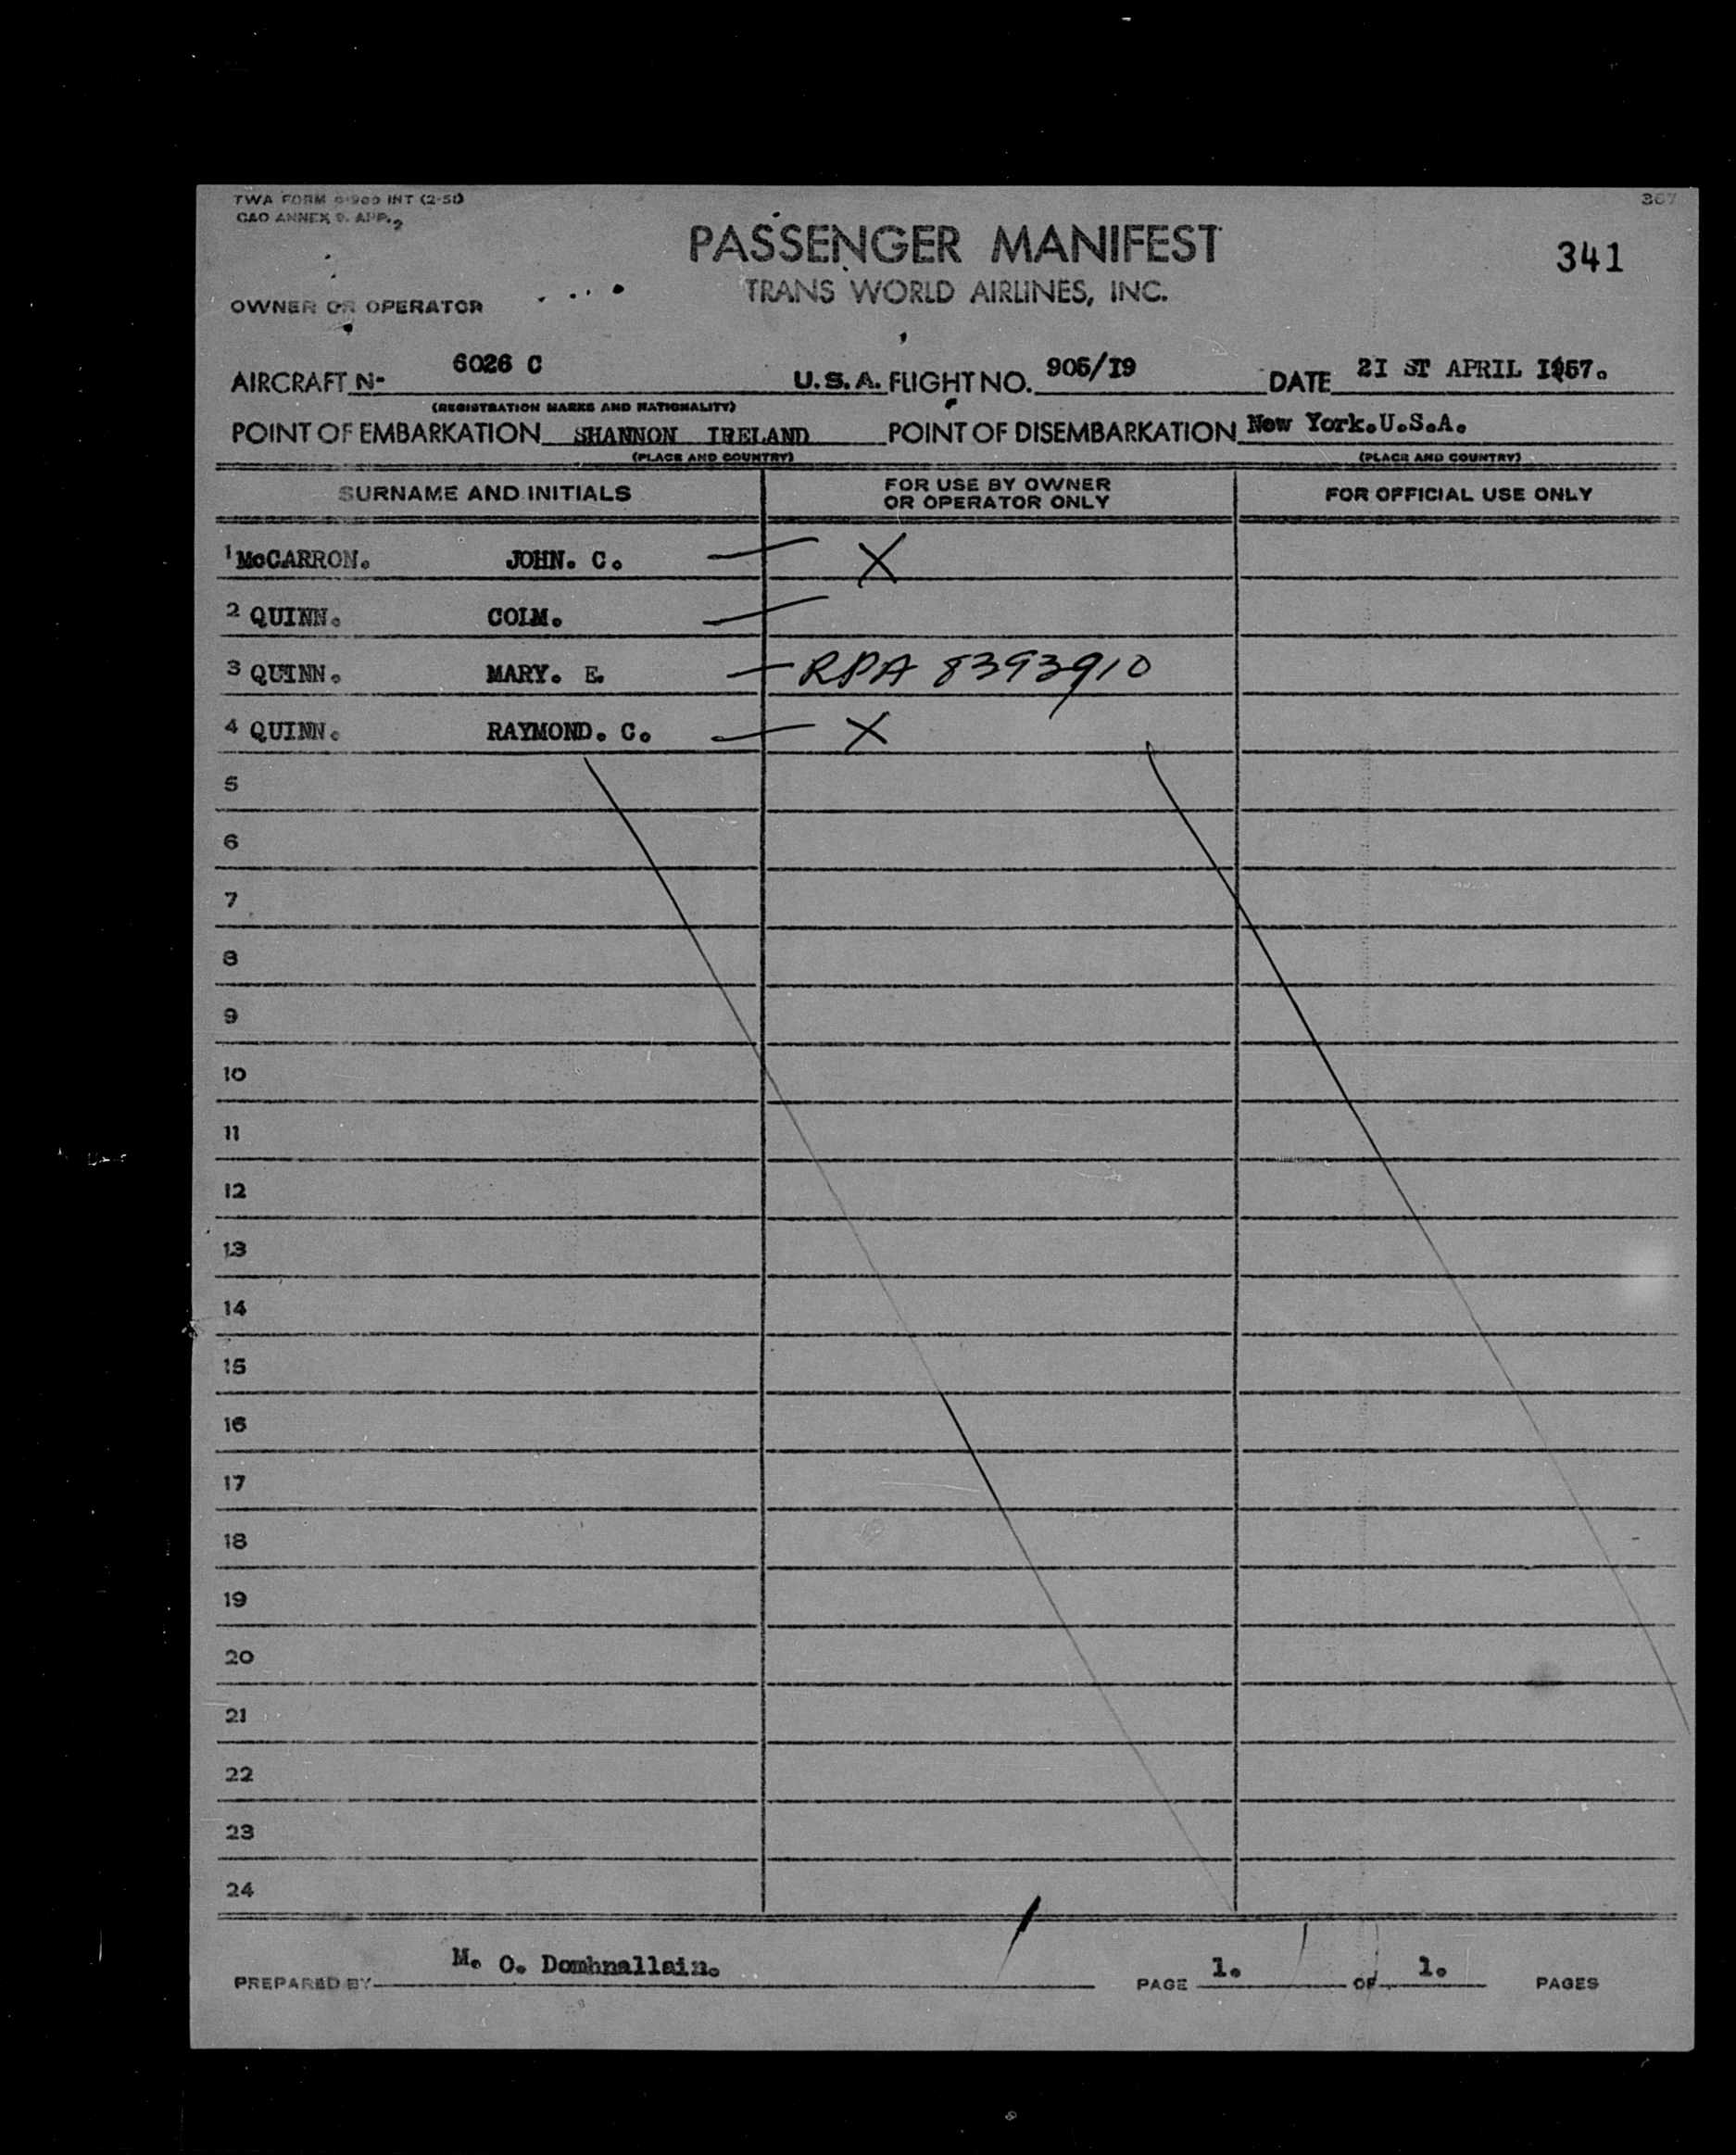 TWA FORM INT (2-51)
CAO ANNEX 9. APP. 2
PASSENGER MANIFEST
341
TRANS WORLD AIRLINES, INC.
OWNER OR OPERATOR
AIRCRAFT N- 6026 C U.S.A. FLIGHT NO. 905/I9 DATE 2I ST APRIL I957.
(REGISTRATION MARKS AND NATIONALITY)
POINT OF EMBARKATION SHANNON IRELAND POINT OF DISEMBARKATION New York.U.S.A.
(PLACE AND COUNTRY) (PLACE AND COUNTRY)
SURNAME AND INITIALS FOR USE BY OWNER OR OPERATOR ONLY FOR OFFICIAL USE ONLY
1 McCARRON. JOHN. C. X
2 QUINN. COLM.
3 QUINN. MARY. E. RPA 8393910
4 QUINN. RAYMOND. C. X
5
6
7
8
9
10
11
12
13
14
15
16
17
18
19
20
21
22
23
24
PREPARED BY M. O. Domhnallain. PAGE 1. OF 1. PAGES